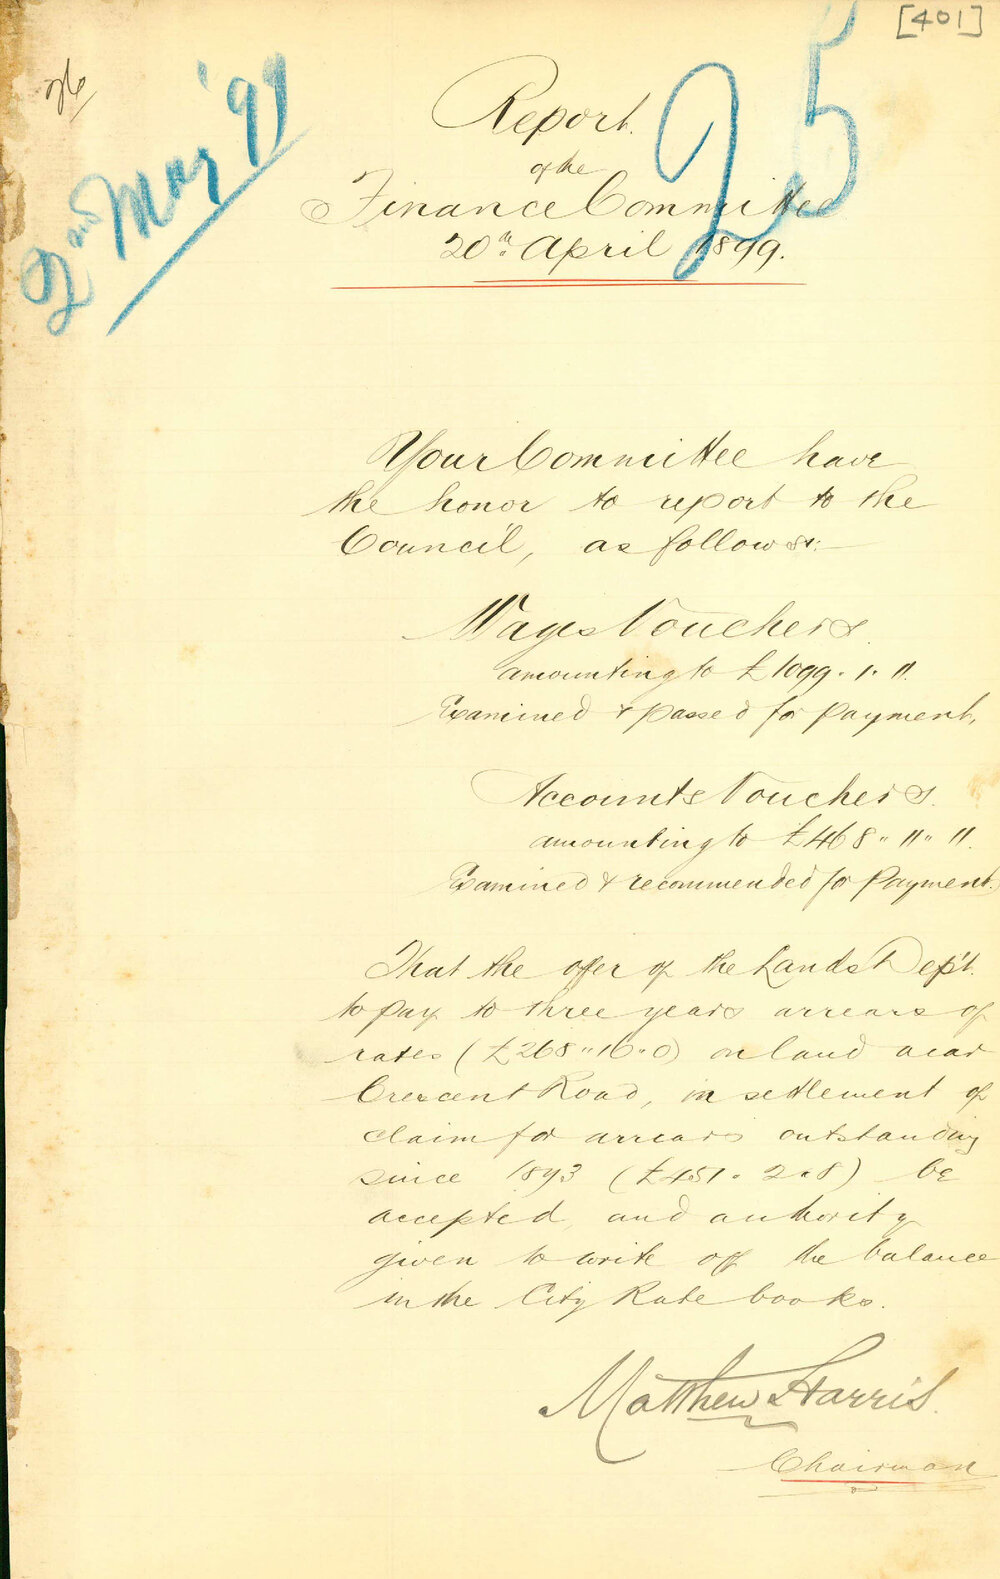 [401]
26
2nd May '99
25
Report
of the
Finance Committee
20th April 1899.
Your Committee have
the honor to report to the
Council, as follows:—
Wages Vouchers.
amounting to £1099. 1. ".
Examined & passed for payment.
Accounts Vouchers.
amounting to £468 " " " ".
Examined & recommended for Payment.
That the offer of the Lands Dep't.
to pay to three years arrears of
rates (£268"16"0) on land near
Crescent Road, in settlement of
claim for arrears outstanding
since 1893 (£451. 2. 8) be
accepted, and authority
given to write off the balance
in the City Rate books.
Matthew Harris.
Chairman